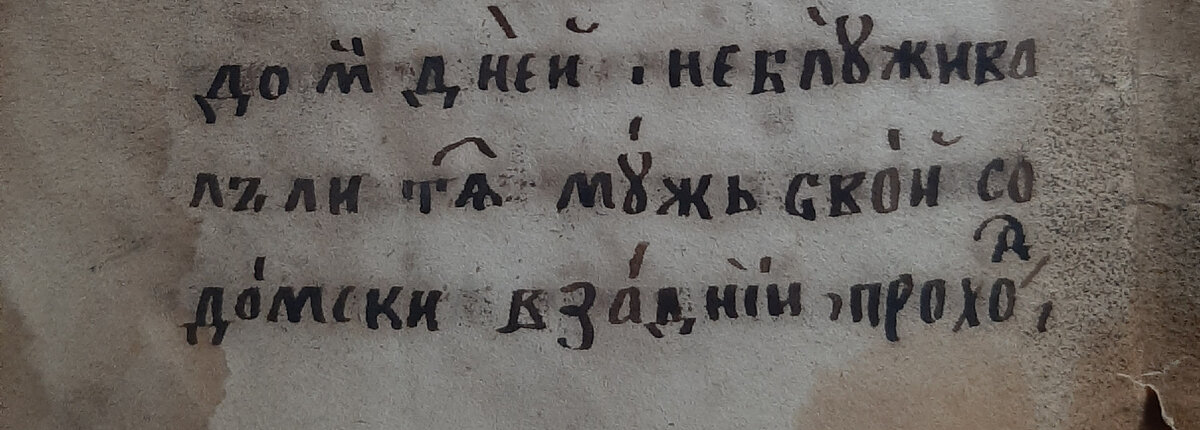 дом̾ дне́й · не блꙋжива
лъ ли тѧ̑ мꙋ́жь сво́й со
до́мски в за́днїи , прохо́ⷣ ,